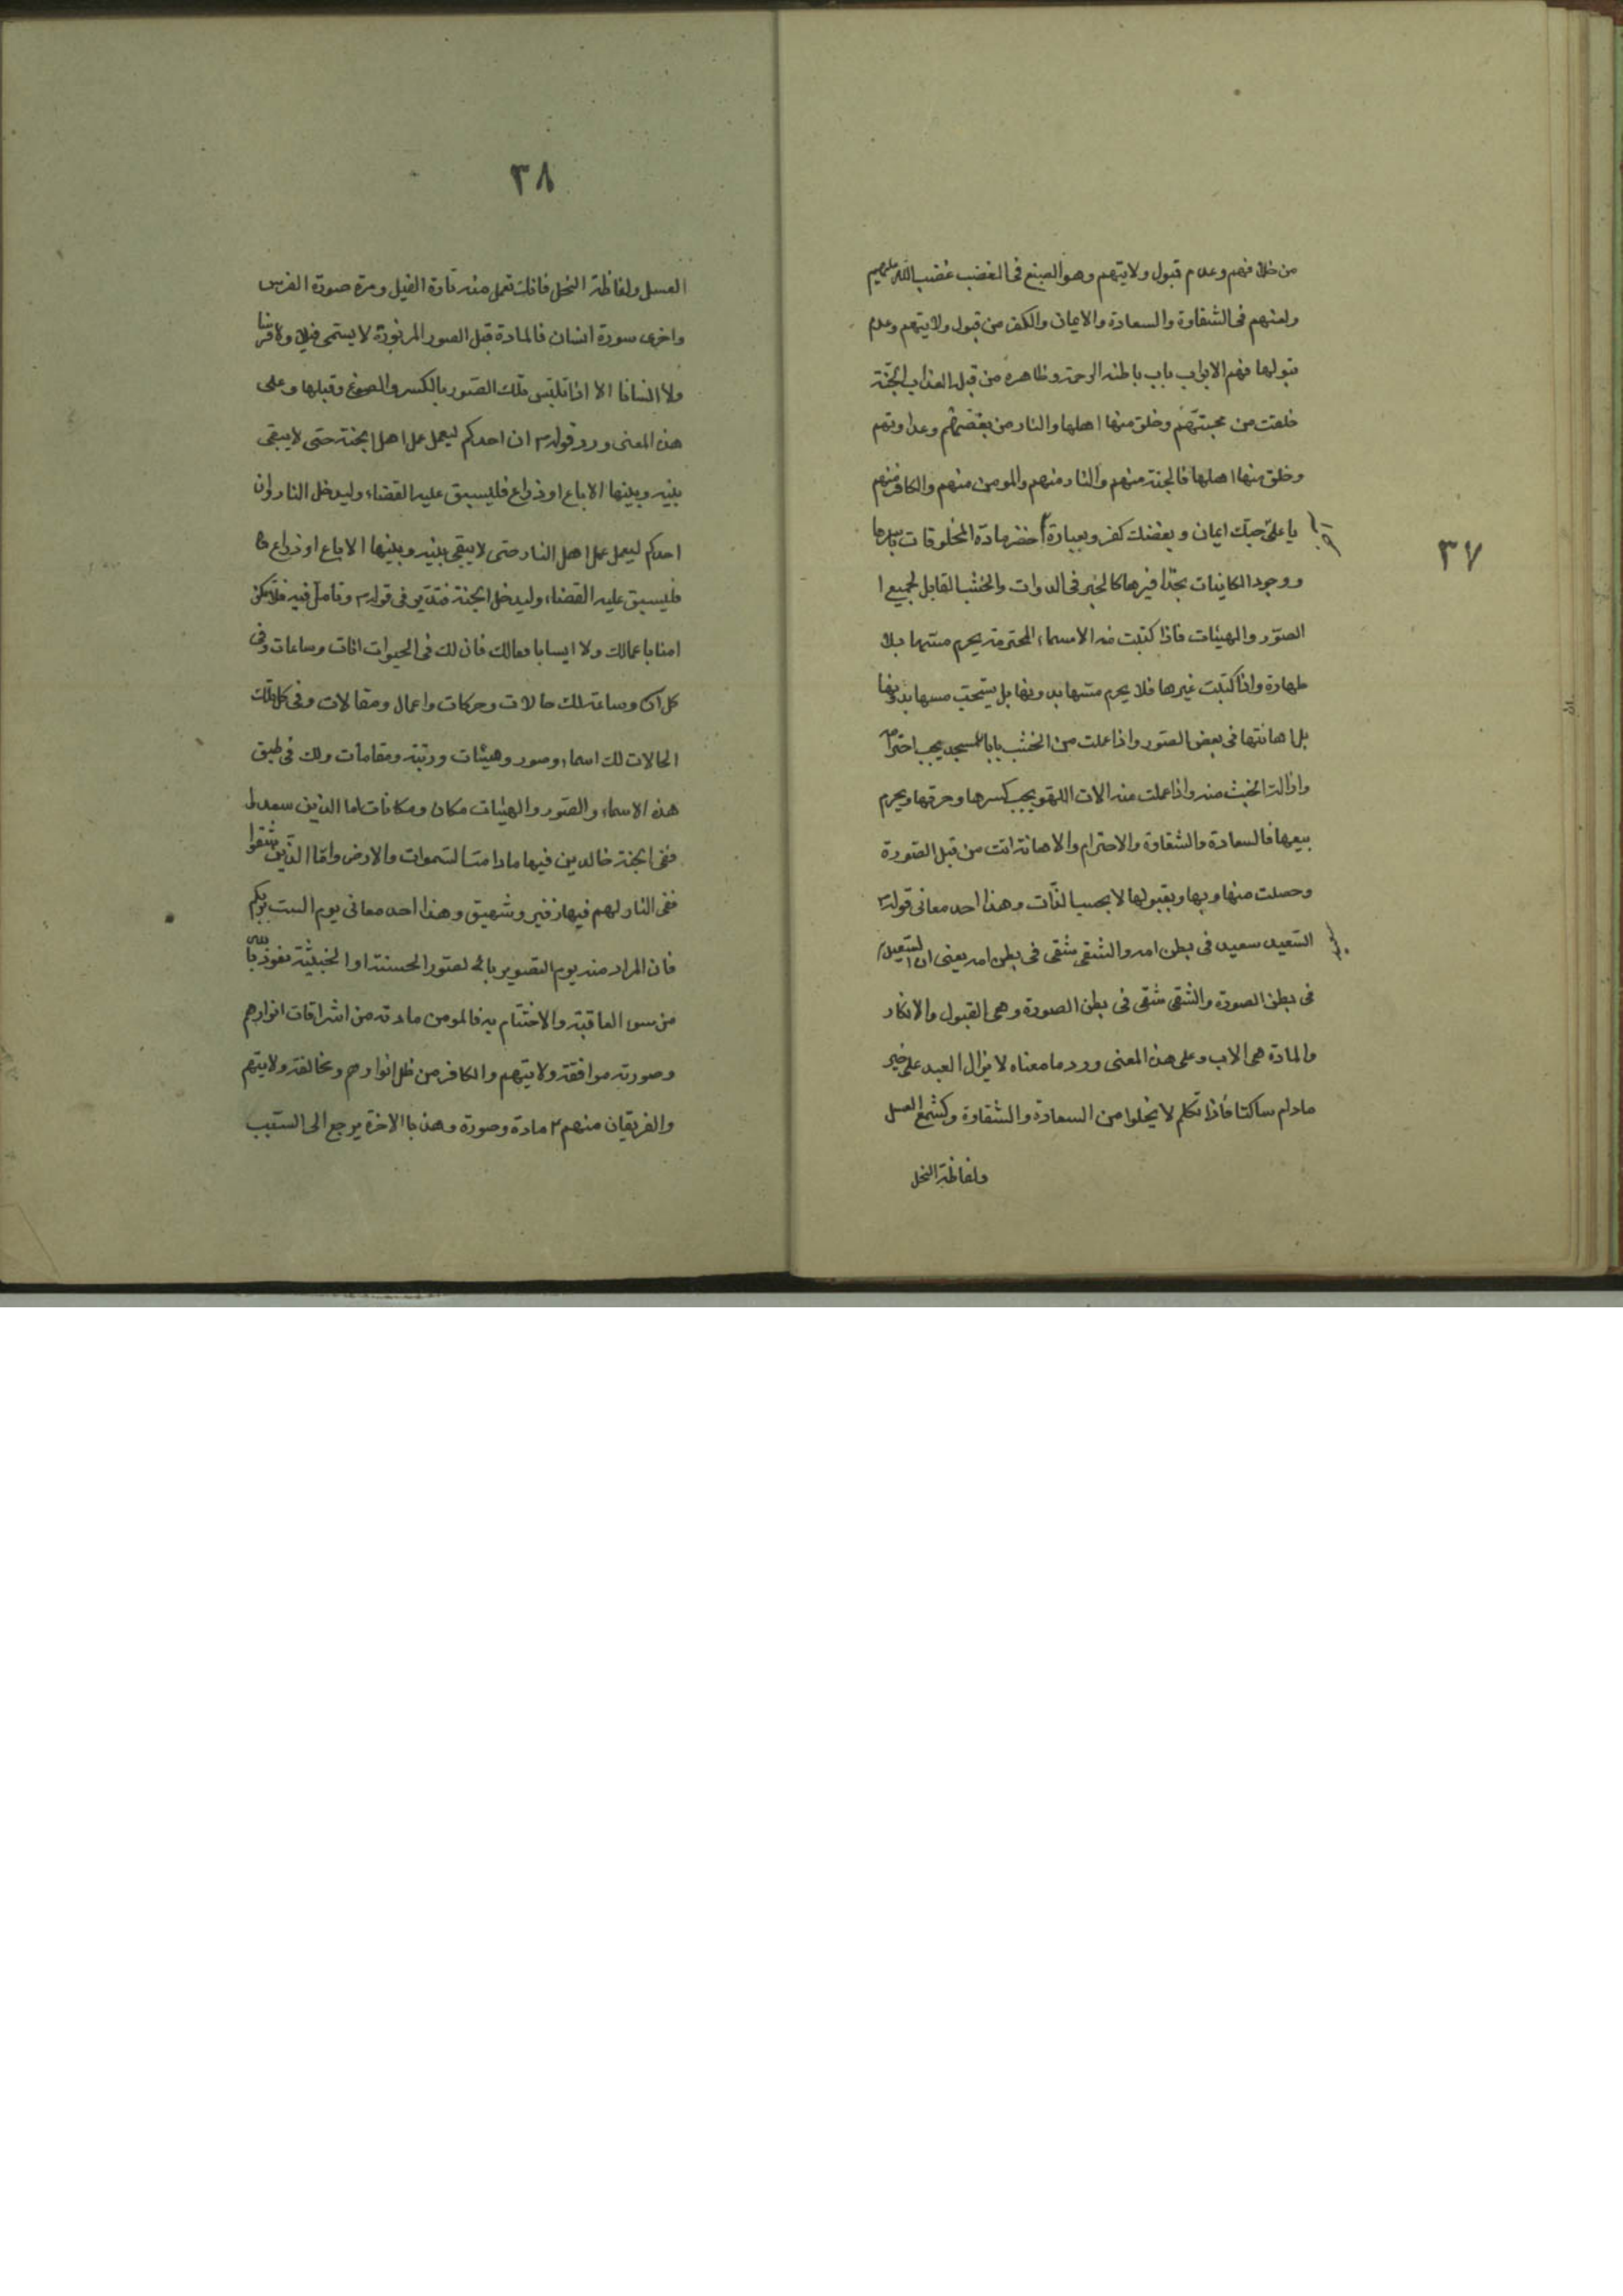 ٣٧
من خلافهم وعدم قبول ولايتهم وهو الصبغ فى الغضب غضب الله عليهم
ولعنهم فى الشقاوة والسعادة والايمان والكفر من قبول ولايتهم وعدم
قبولها فهم الابواب باب باطنه الرحمة وظاهره من قبله العذاب الجنة
خلقت من محبتهم وخلق منها اهلها والنار من بغضهم وعداوتهم
وخلق منها اهلها فالجنة منهم والنار منهم والمومن منهم والكافر منهم
يا على حبك ايمان وبغضك كفر وبعبارة اخضر مادة المخلوقات باسرها
ووجود الكاينات بحذافيرها كالحبر فى الدوات والخشب القابل لجميع ا
الصور والهيئات فاذا كتبت منه الاسماء المحترمة يحرم مسها بلا
طهارة واذا كتبت غيرها فلا يحرم مسها بدونها بل يستحب مسها بدونها
بل اهانتها فى بعض الصور واذا عملت من الخشب بابا للمسجد يجب احترامه
وازالة الخبث منه واذا عملت منه الات اللهو يجب كسرها وحرقها ويحرم
بيعها فالسعادة والشقاوة والاحترام والاهانة اتت من قبل الصورة
وحصلت منها وبها وبقبولها لا بحسب الذات وهذا احد معانى قوله
السعيد سعيد فى بطن امه والشقى شقى فى بطن امه يعنى ان السعيد
فى بطن الصورة والشقى شقى فى بطن الصورة وهى القبول والانكار
والمادة هى الاب وعلى هذا المعنى ورد ما معناه لا يزال العبد على خير
مادام ساكتا فاذا تكلم لا يخلوا من السعادة والشقاوة وكشمع العسل
ولفاظة النحل
٣٨
العسل ولفاظة النحل فانك تعمل منه تارة الفيل ومرة صورة الفرس
واخرى سورة انسان فالمادة قبل الصور المزبورة لا يسمى فيلا ولا فرسا
ولا انسانا الا اذا تلبس تلك الصور بالكسر والصوغ وقبلها وعلى
هذا المعنى ورد قوله ان احدكم ليعمل عمل اهل الجنة حتى لا يبقى
بينه وبينها الا باع او ذراع فليسبق عليه القضاء وليدخل النار وان
احدكم ليعمل عمل اهل النار حتى لا يبقى بينه وبينها الا باع او ذراع
فليسبق عليه القضاء وليدخل الجنة فتدبر فى قوله وتامل فيه فلا تكن
امنا باعمالك ولا ايسا بافعالك فان لك فى الحيوات انات وساعات وفى
كل ان وساعة لك حالات وحركات واعمال ومقالات وفى كل تلك
الحالات لك اسماء وصور وهيئات ورتبة ومقامات ولك فى طبق
هذه الاسماء والصور والهيئات مكان ومكانات اما الذين سعدوا
ففى الجنة خالدين فيها مادامت السموات والارض واما الذين شقوا
ففى النار لهم فيها زفير وشهيق وهذا احد معانى يوم الست بربكم
فان المراد منه يوم التصوير بالصور الحسنة او الخبيثة نعوذ بالله
من سوء العاقبة والاختتام به فالمومن مادته من اشراقات انوارهم
وصورته موافقة ولايتهم والكافر من ظل انوارهم ومخالفة ولايتهم
والفريقان منهم مادة وصورة وهذا بالاخرة يرجع الى السبب